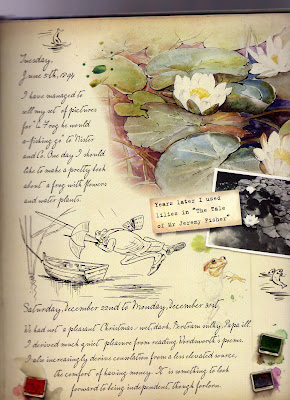 Tuesday,
June 5th, 1894
I have managed to
sell my set of pictures
for "A Frog he would
a-fishing go" to Nister
and Co. One day I should
like to make a pretty book
about a frog with flowers
and water plants.
Years later I used
lilies in "The Tale
of Mr Jeremy Fisher"
Saturday, December 22nd to Monday, December 31st,
We had not a pleasant Christmas: wet, dark, Bertram sulky, Papa ill.
I derived much quiet pleasure from reading Wordsworth's poems.
I also increasingly derive consolation from a less elevated source,
the comfort of having money. It is something to look
forward to being independent, though forlorn.